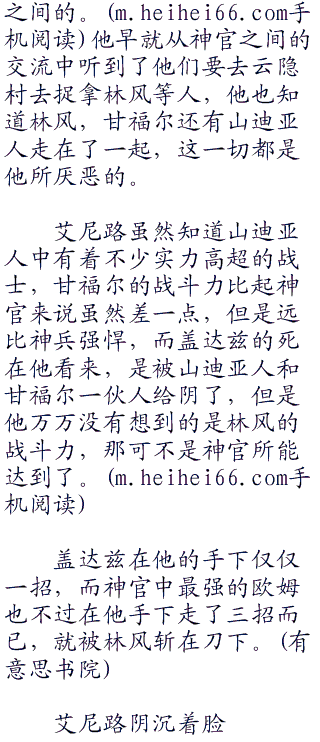 之间的。(m.heihei66.com手
机阅读)他早就从神官之间的
交流中听到了他们要去云隐
村去捉拿林风等人，他也知
道林风，甘福尔还有山迪亚
人走在了一起，这一切都是
他所厌恶的。
艾尼路虽然知道山迪亚
人中有着不少实力高超的战
士，甘福尔的战斗力比起神
官来说虽然差一点，但是远
比神兵强悍，而盖达兹的死
在他看来，是被山迪亚人和
甘福尔一伙人给阴了，但是
他万万没有想到的是林风的
战斗力，那可不是神官所能
达到了。(m.heihei66.com手
机阅读)
盖达兹在他的手下仅仅
一招，而神官中最强的欧姆
也不过在他手下走了三招而
已，就被林风斩在刀下。(有
意思书院)
艾尼路阴沉着脸